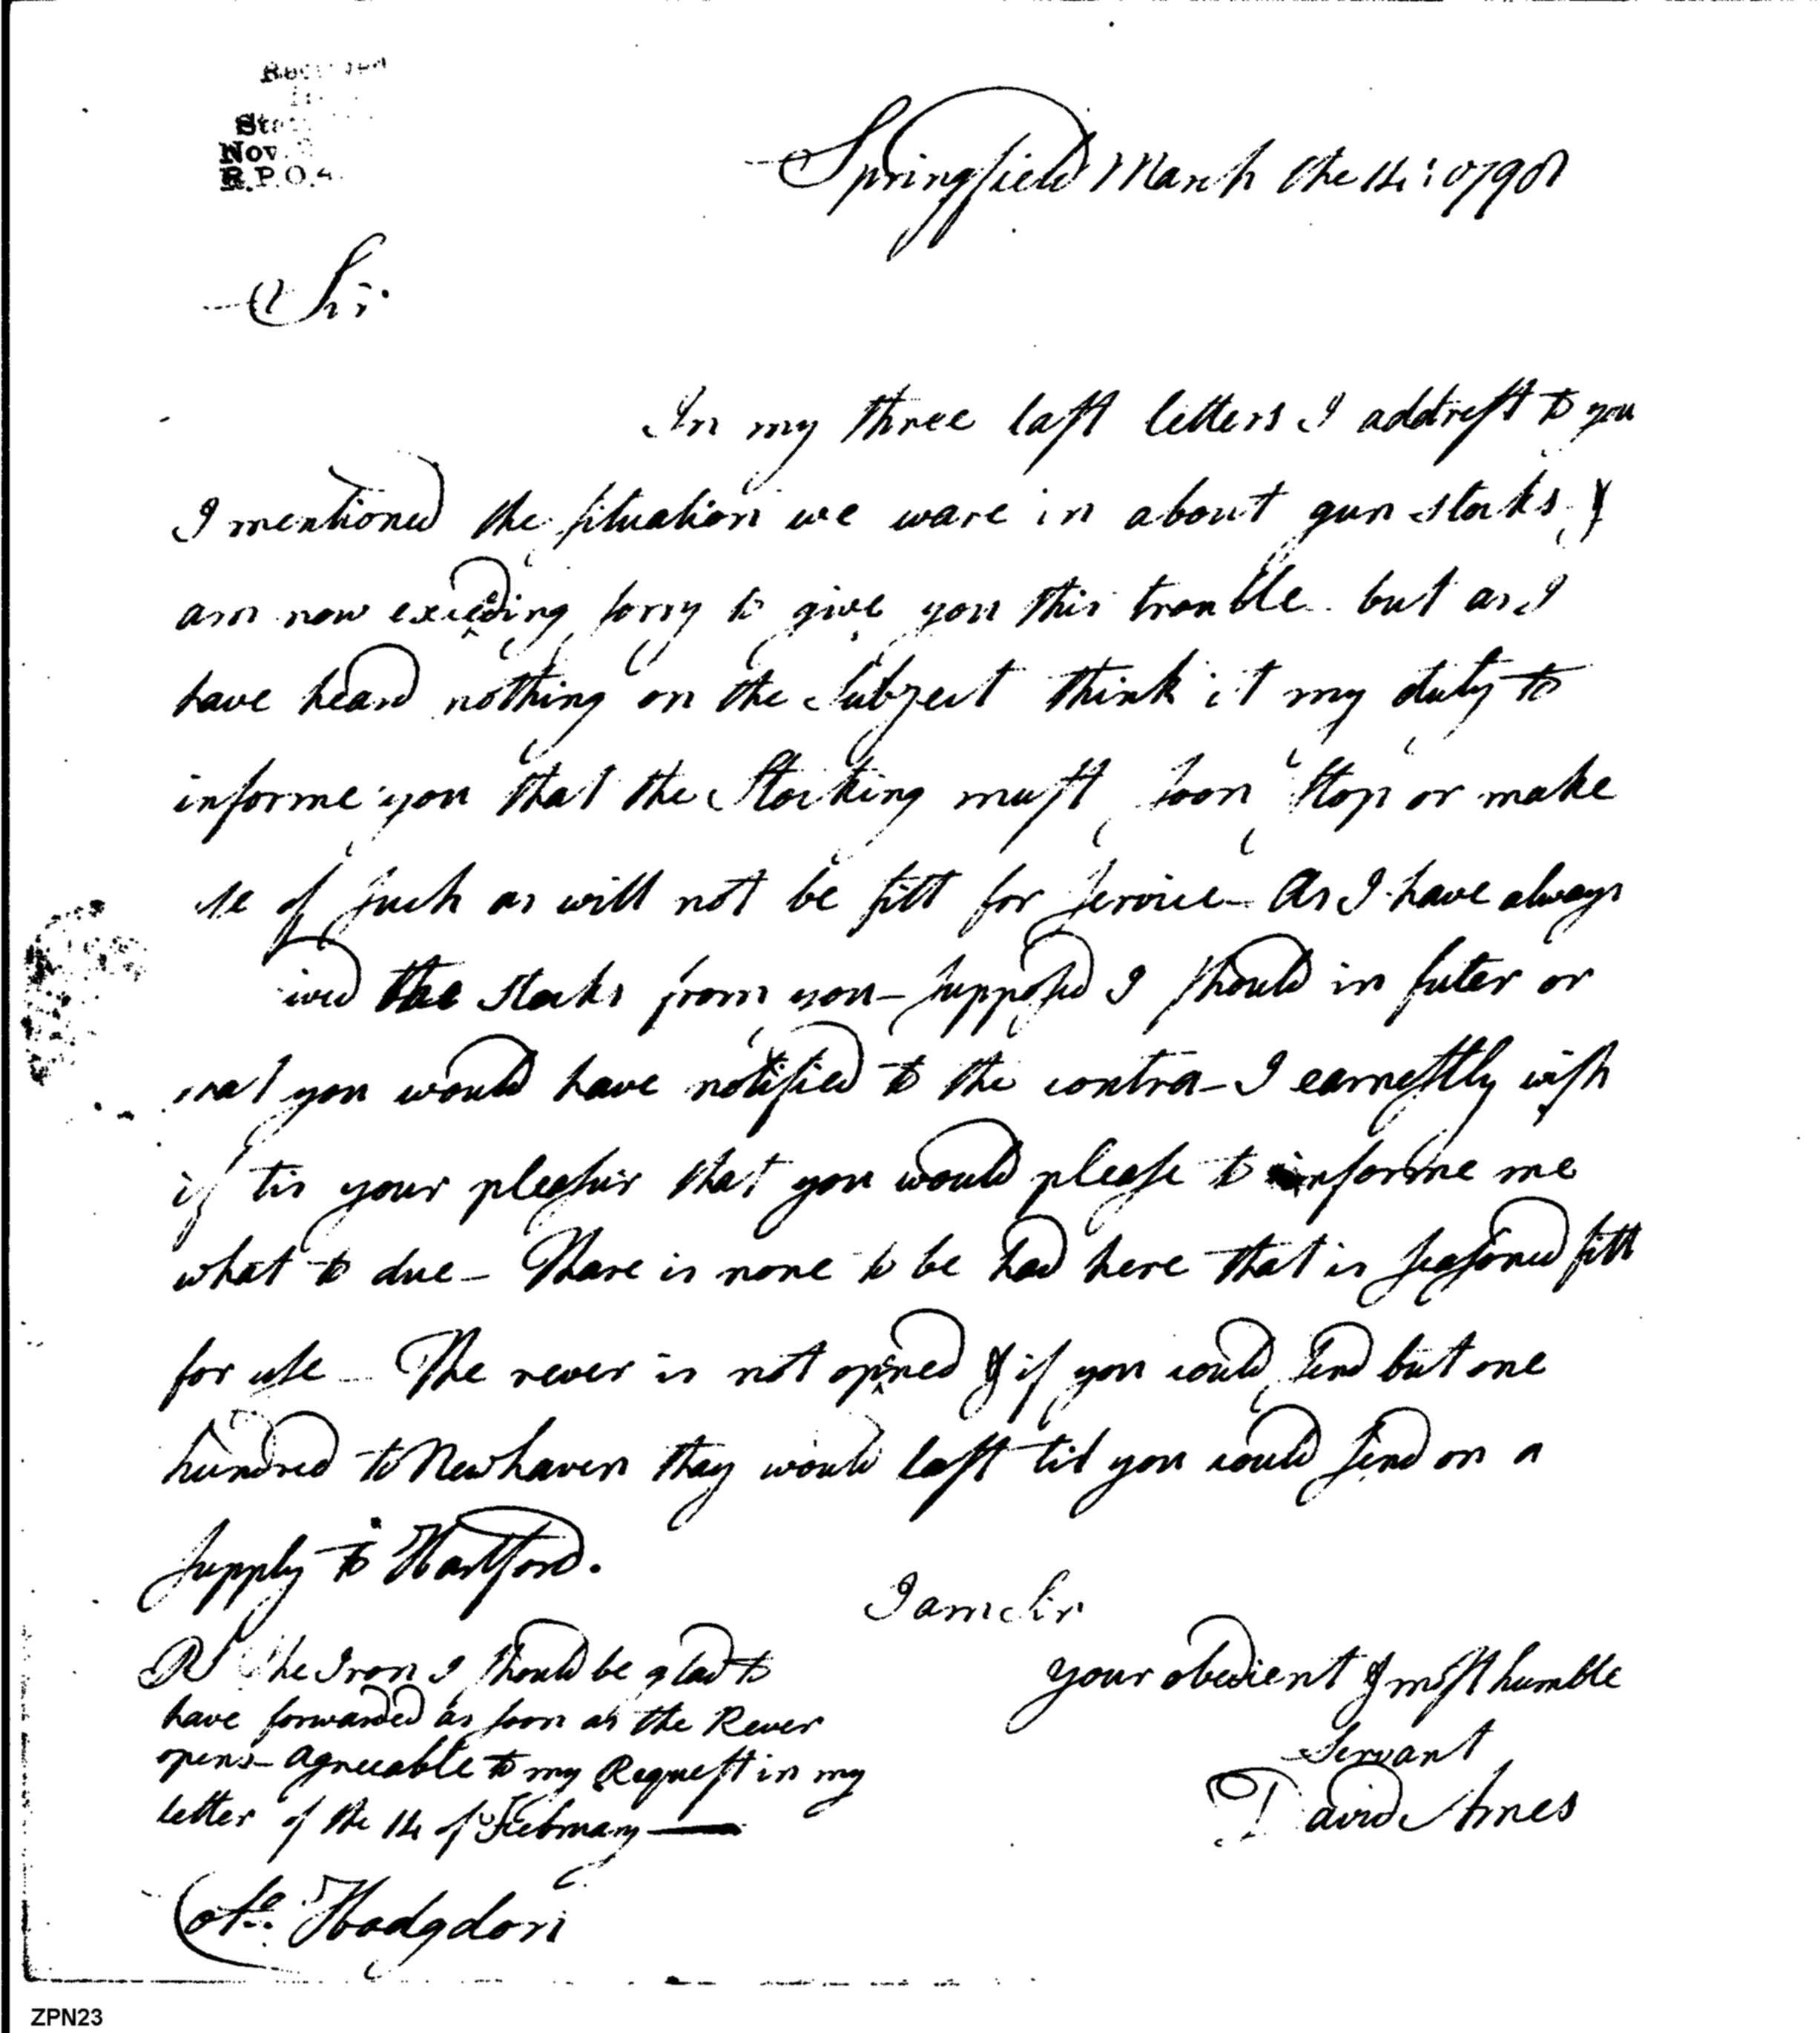 Nov.
R.P.O.4.
Springfield March the 14: 1798
Sir
In my three last letters I addrest to you
I mentioned the situation we ware in about gun stocks &
am now exceeding sorry to give you this trouble but as I
have heard nothing on the Subject think it my duty to
informe you that the Stocking must soon stop or make
use of such as will not be fitt for service – As I have always
the stocks from you – supposed I should in futer or
that you would have notified to the contra – I earnestly wish
if tis your pleasur that you would please to informe me
what to due – Thare is none to be had here that is seasoned fitt
for use – The rever is not opened & if you could send but one
hundred to Newhaven thay would last til you could send on a
supply to Hartford.
I am Sir
your obedient & most humble
Servant
David Ames
PS The Iron I should be glad to
have forwarded as soon as the Rever
opens – agreeable to my Request in my
letter of the 14 of February —
Colo. Hodgdon
ZPN23